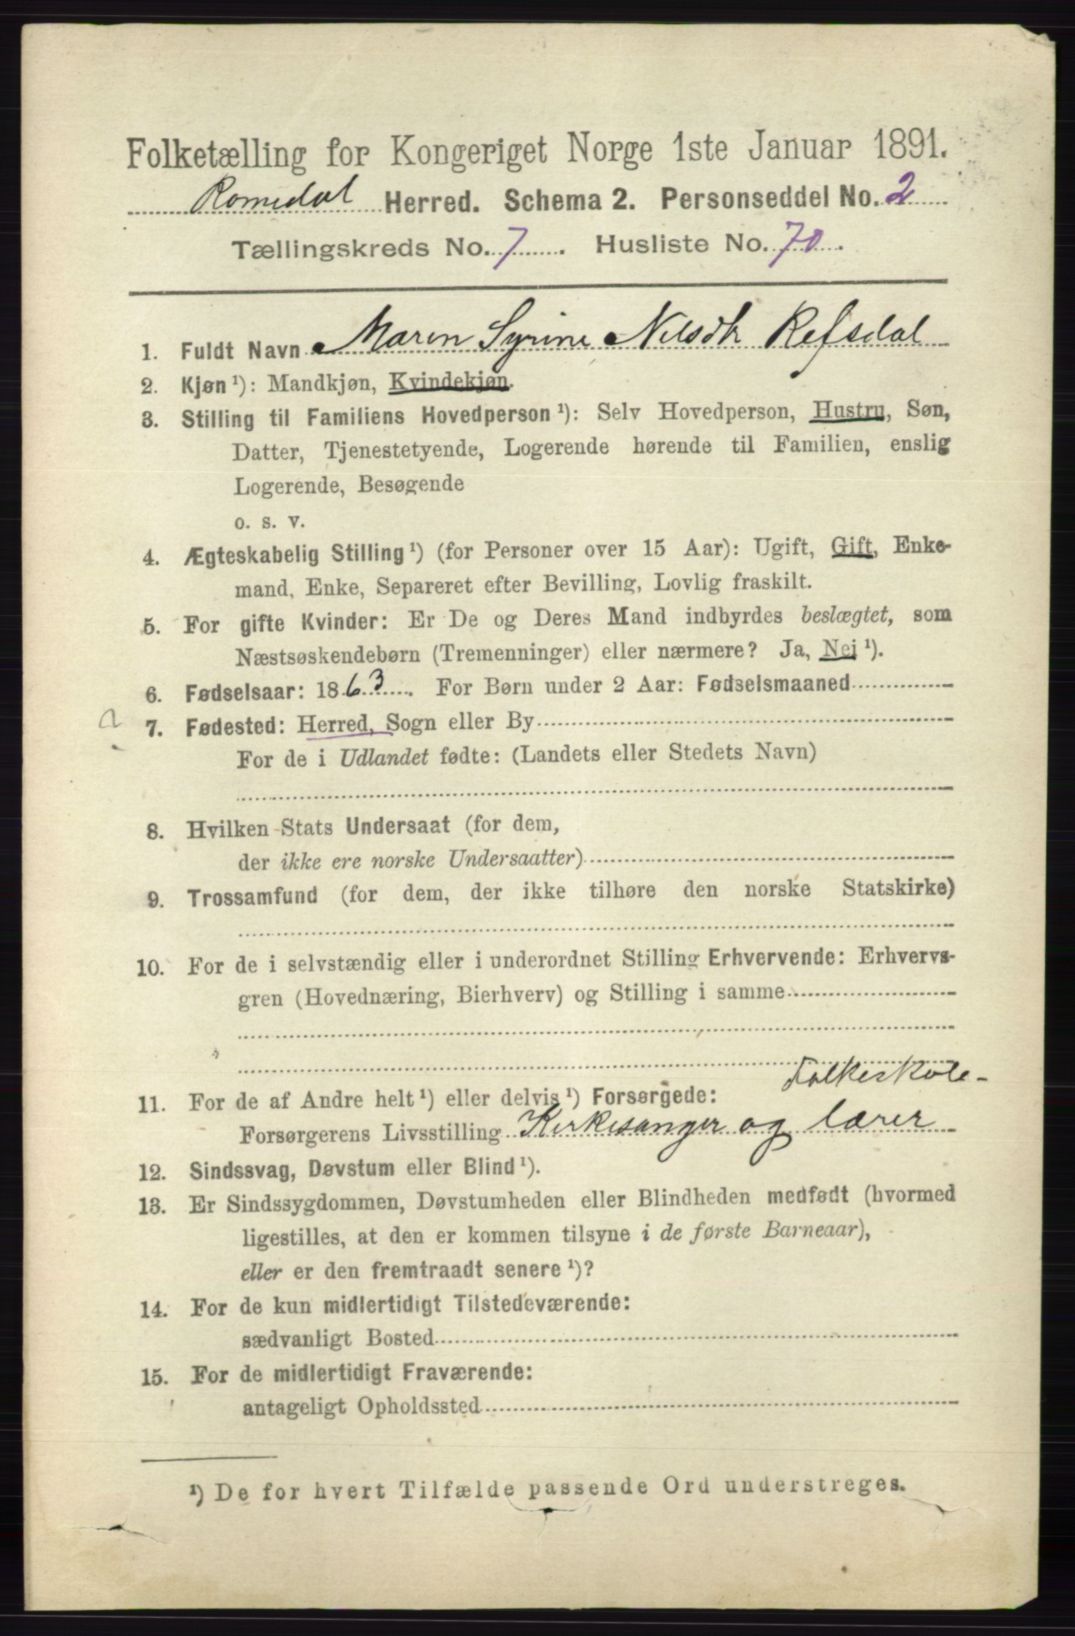 Folketælling for Kongeriget Norge 1ste Januar 1891.
Romedal Herred. Schema 2. Personseddel No. 2
Tællingskreds No. 7. Husliste No. 70.
1. Fuldt Navn Maren Syrine Nilsdtr Refsdal
2. Kjøn ¹): Mandkjøn, Kvindekjøn.
3. Stilling til Familiens Hovedperson ¹): Selv Hovedperson, Hustru, Søn,
Datter, Tjenestetyende, Logerende hørende til Familien, enslig
Logerende, Besøgende
o. s. v.
4. Ægteskabelig Stilling ¹) (for Personer over 15 Aar): Ugift, Gift, Enke-
mand, Enke, Separeret efter Bevilling, Lovlig fraskilt.
5. For gifte Kvinder: Er De og Deres Mand indbyrdes beslægtet, som
Næstsøskendebørn (Tremenninger) eller nærmere? Ja, Nej ¹).
6. Fødselsaar: 1863. For Børn under 2 Aar: Fødselsmaaned
7. Fødested: Herred, Sogn eller By
For de i Udlandet fødte: (Landets eller Stedets Navn)
8. Hvilken Stats Undersaat (for dem,
der ikke ere norske Undersaatter)
9. Trossamfund (for dem, der ikke tilhøre den norske Statskirke)
10. For de i selvstændig eller i underordnet Stilling Erhvervende: Erhvervs-
gren (Hovednæring, Bierhverv) og Stilling i samme
Folkeskole-
11. For de af Andre helt ¹) eller delvis ¹) Forsørgede:
Forsørgerens Livsstilling Kirkesanger og lærer
12. Sindssvag, Døvstum eller Blind ¹).
13. Er Sindssygdommen, Døvstumheden eller Blindheden medfødt (hvormed
ligestilles, at den er kommen tilsyne i de første Barneaar),
eller er den fremtraadt senere ¹)?
14. For de kun midlertidigt Tilstedeværende:
sædvanligt Bosted
15. For de midlertidigt Fraværende:
antageligt Opholdssted
¹) De for hvert Tilfælde passende Ord understreges.